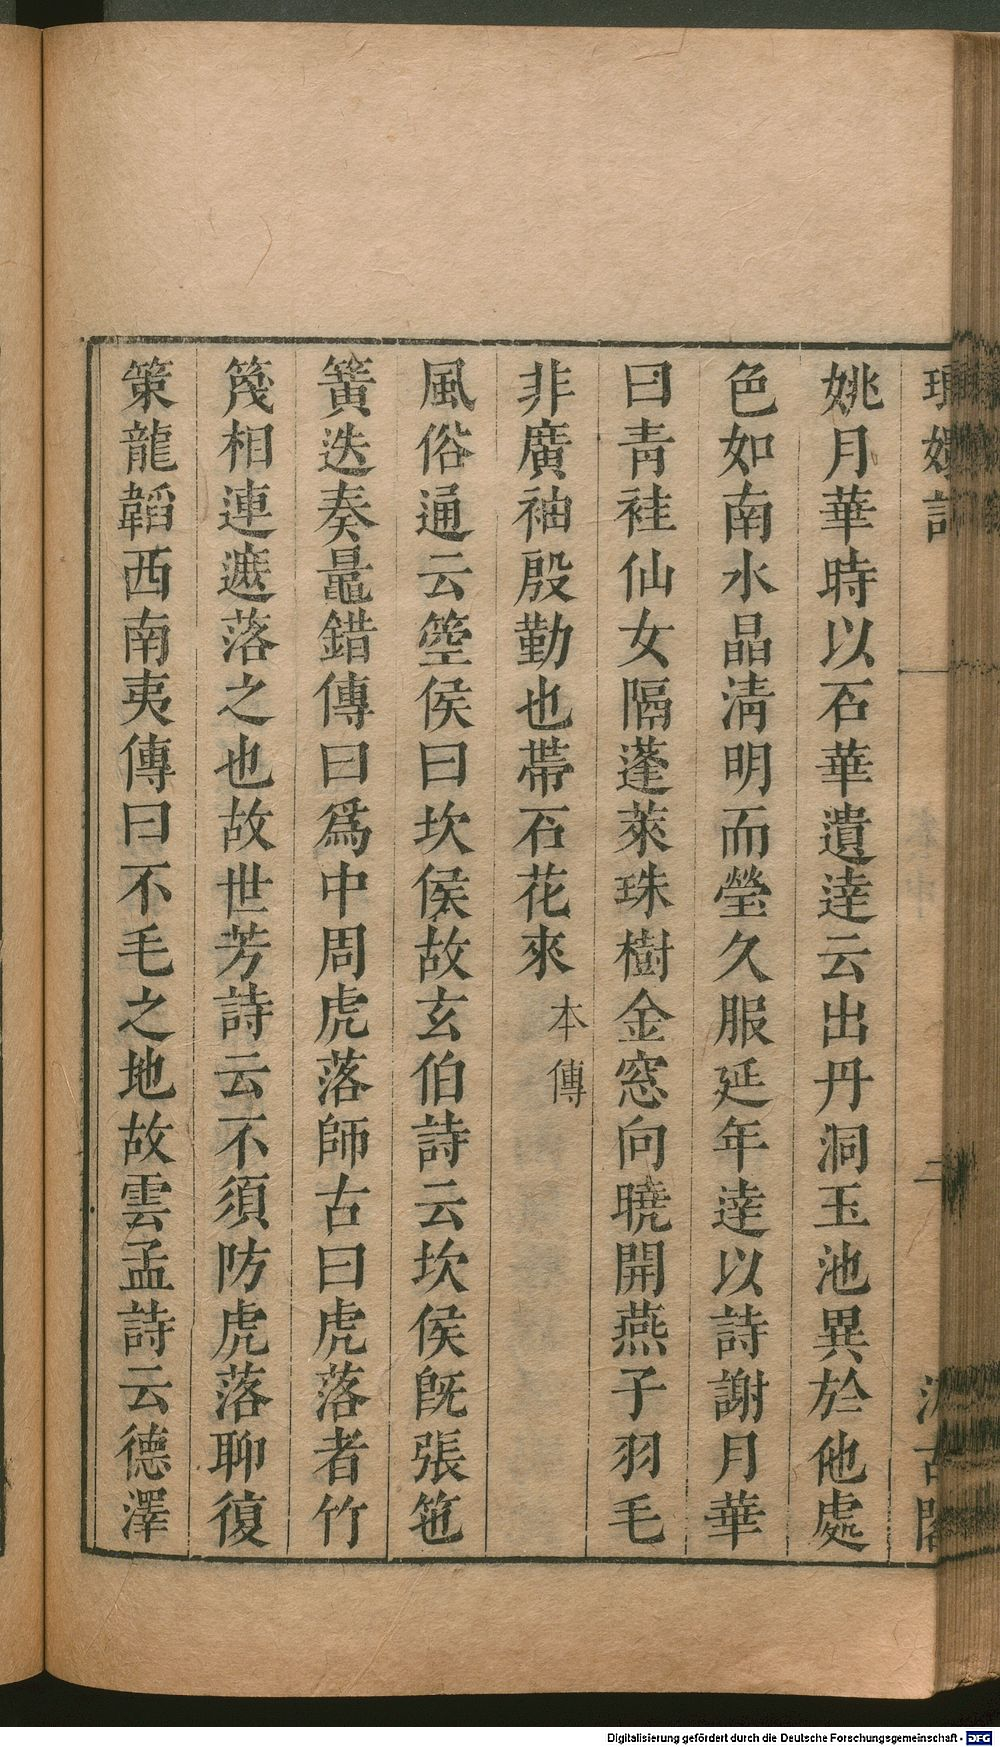 姚月華時以石華遺達云出丹洞玉池異於他處
色如南水晶淸明而瑩久服延年達以詩謝月華
曰靑袿仙女隔蓬萊珠樹金窓向曉開燕子羽毛
非廣袖殷勤也帶石花來本傳
風俗通云箜侯曰坎侯故玄伯詩云坎侯旣張笹
簧迭奏鼂錯傳曰爲中周虎落師古曰虎落者竹
篾相連遮落之也故世芳詩云不須防虎落聊復
策龍韜西南夷傳曰不毛之地故雲孟詩云德澤
二
Digitalisierung gefördert durch die Deutsche Forschungsgemeinschaft - DFG